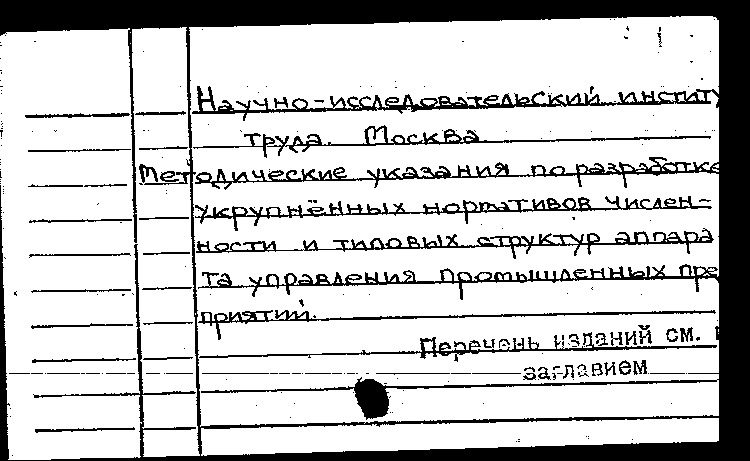 Научно-исследовательский институ
труда. Москва.
Методические указания по разработке
укрупнённых нормативов числен=
ности и типовых структур аппара
та управления промышленных пре
приятий.
Перечень изданий см.
заглавием